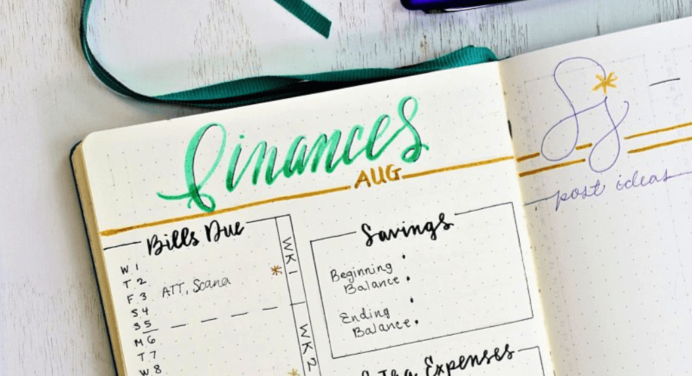 Finances
AUG
Bills Due
W 1
T 2
F 3 ATT, Scana
S 4
S 5
M 6
T 7
W 8
WK 1
WK 2
Savings
Beginning
Balance
Ending
Balance
Extra Expenses
Sj
post ideas